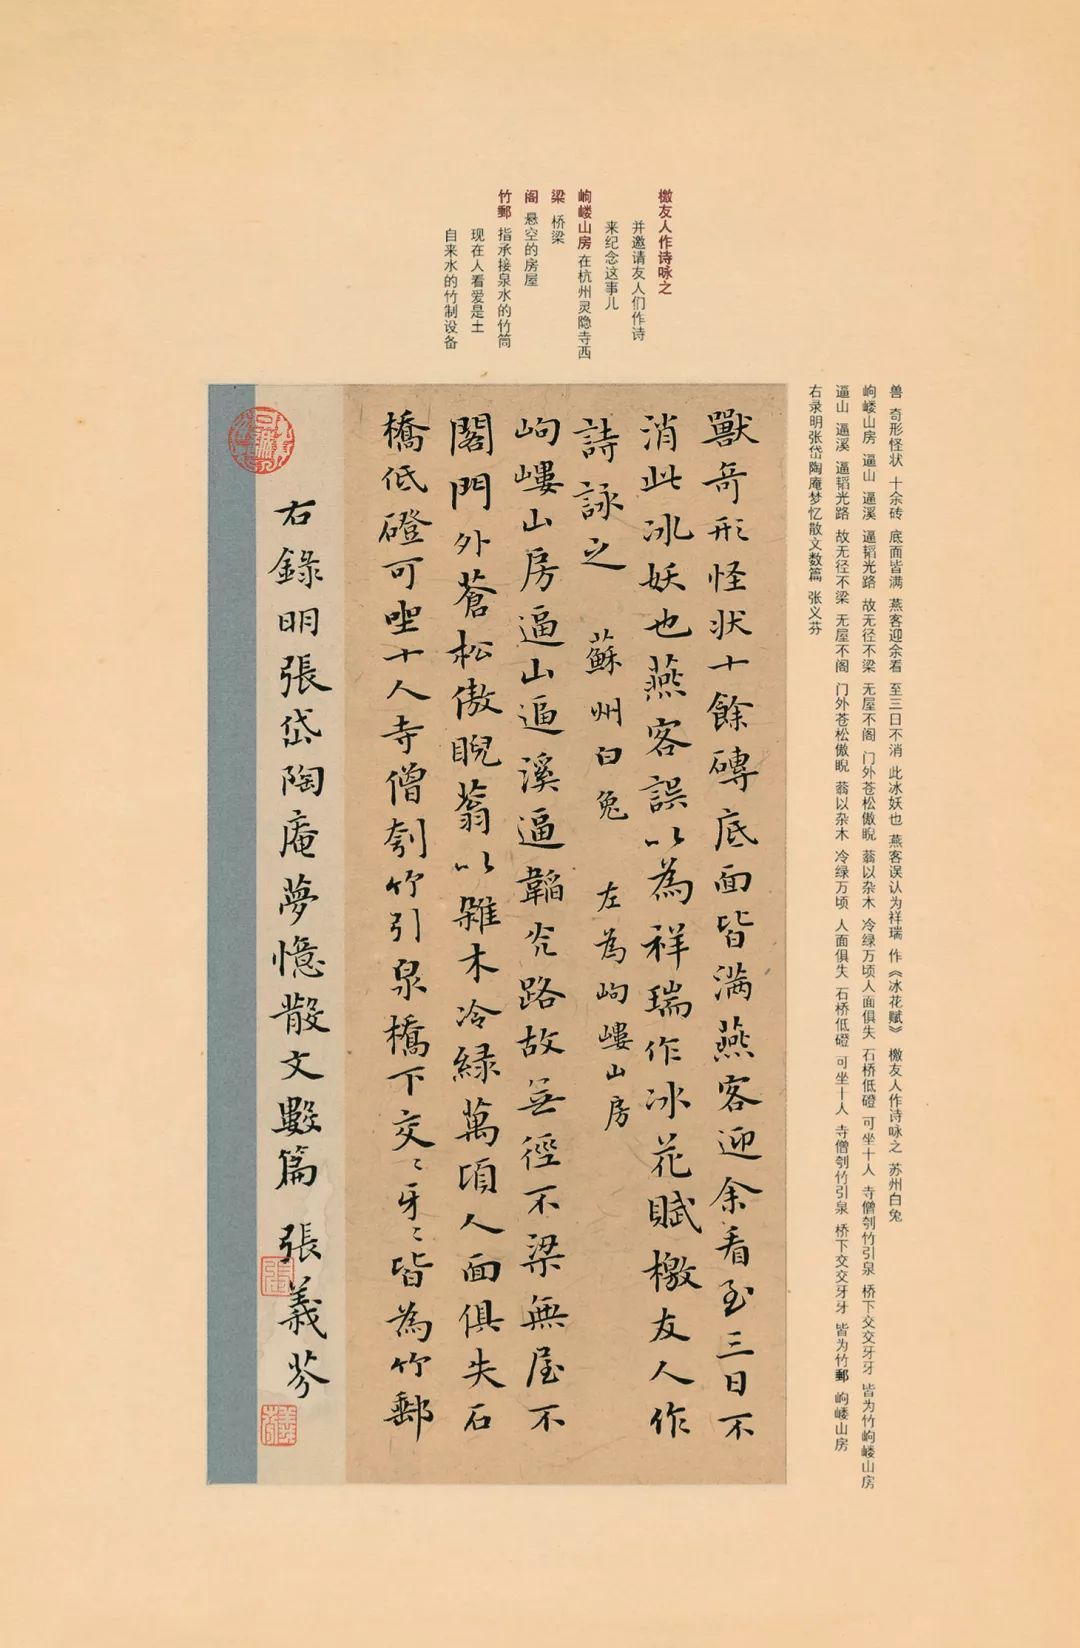 檄友人作诗咏之
并邀请友人们作诗
来纪念这事儿
岣嵝山房 在杭州灵隐寺西
梁 桥梁
阁 悬空的房屋
竹郵 指承接泉水的竹筒
现在人看爱是土
自来水的竹制设备
兽 奇形怪状 十余砖 底面皆满 燕客迎余看 至三日不消 此冰妖也 燕客误认为祥瑞 作《冰花赋》 檄友人作诗咏之 苏州白兔
岣嵝山房 逼山 逼溪 逼韬光路 故无径不梁 无屋不阁 门外苍松傲睨 蓊以杂木 冷绿万顷人面俱失 石桥低磴 可坐十人 寺僧刳竹引泉 桥下交交牙牙 皆为竹岣嵝山房
逼山 逼溪 逼韬光路 故无径不梁 无屋不阁 门外苍松傲睨 蓊以杂木 冷绿万顷 人面俱失 石桥低磴 可坐十人 寺僧刳竹引泉 桥下交交牙牙 皆为竹郵 岣嵝山房
右录明张岱陶庵梦忆散文数篇 张义芬
獸奇形怪状十餘磚底面皆满燕客迎余看至三日不
消此冰妖也燕客誤以為祥瑞作冰花賦檄友人作
詩詠之 蘇州白兔 左為岣嶁山房
岣嶁山房逼山逼溪逼韜光路故無徑不梁無屋不
閣門外蒼松傲睨蓊以雜木冷緑萬頃人面俱失石
橋低磴可坐十人寺僧刳竹引泉橋下交〻牙〻皆為竹郵
右錄明張岱陶庵夢憶散文數篇 張義芬